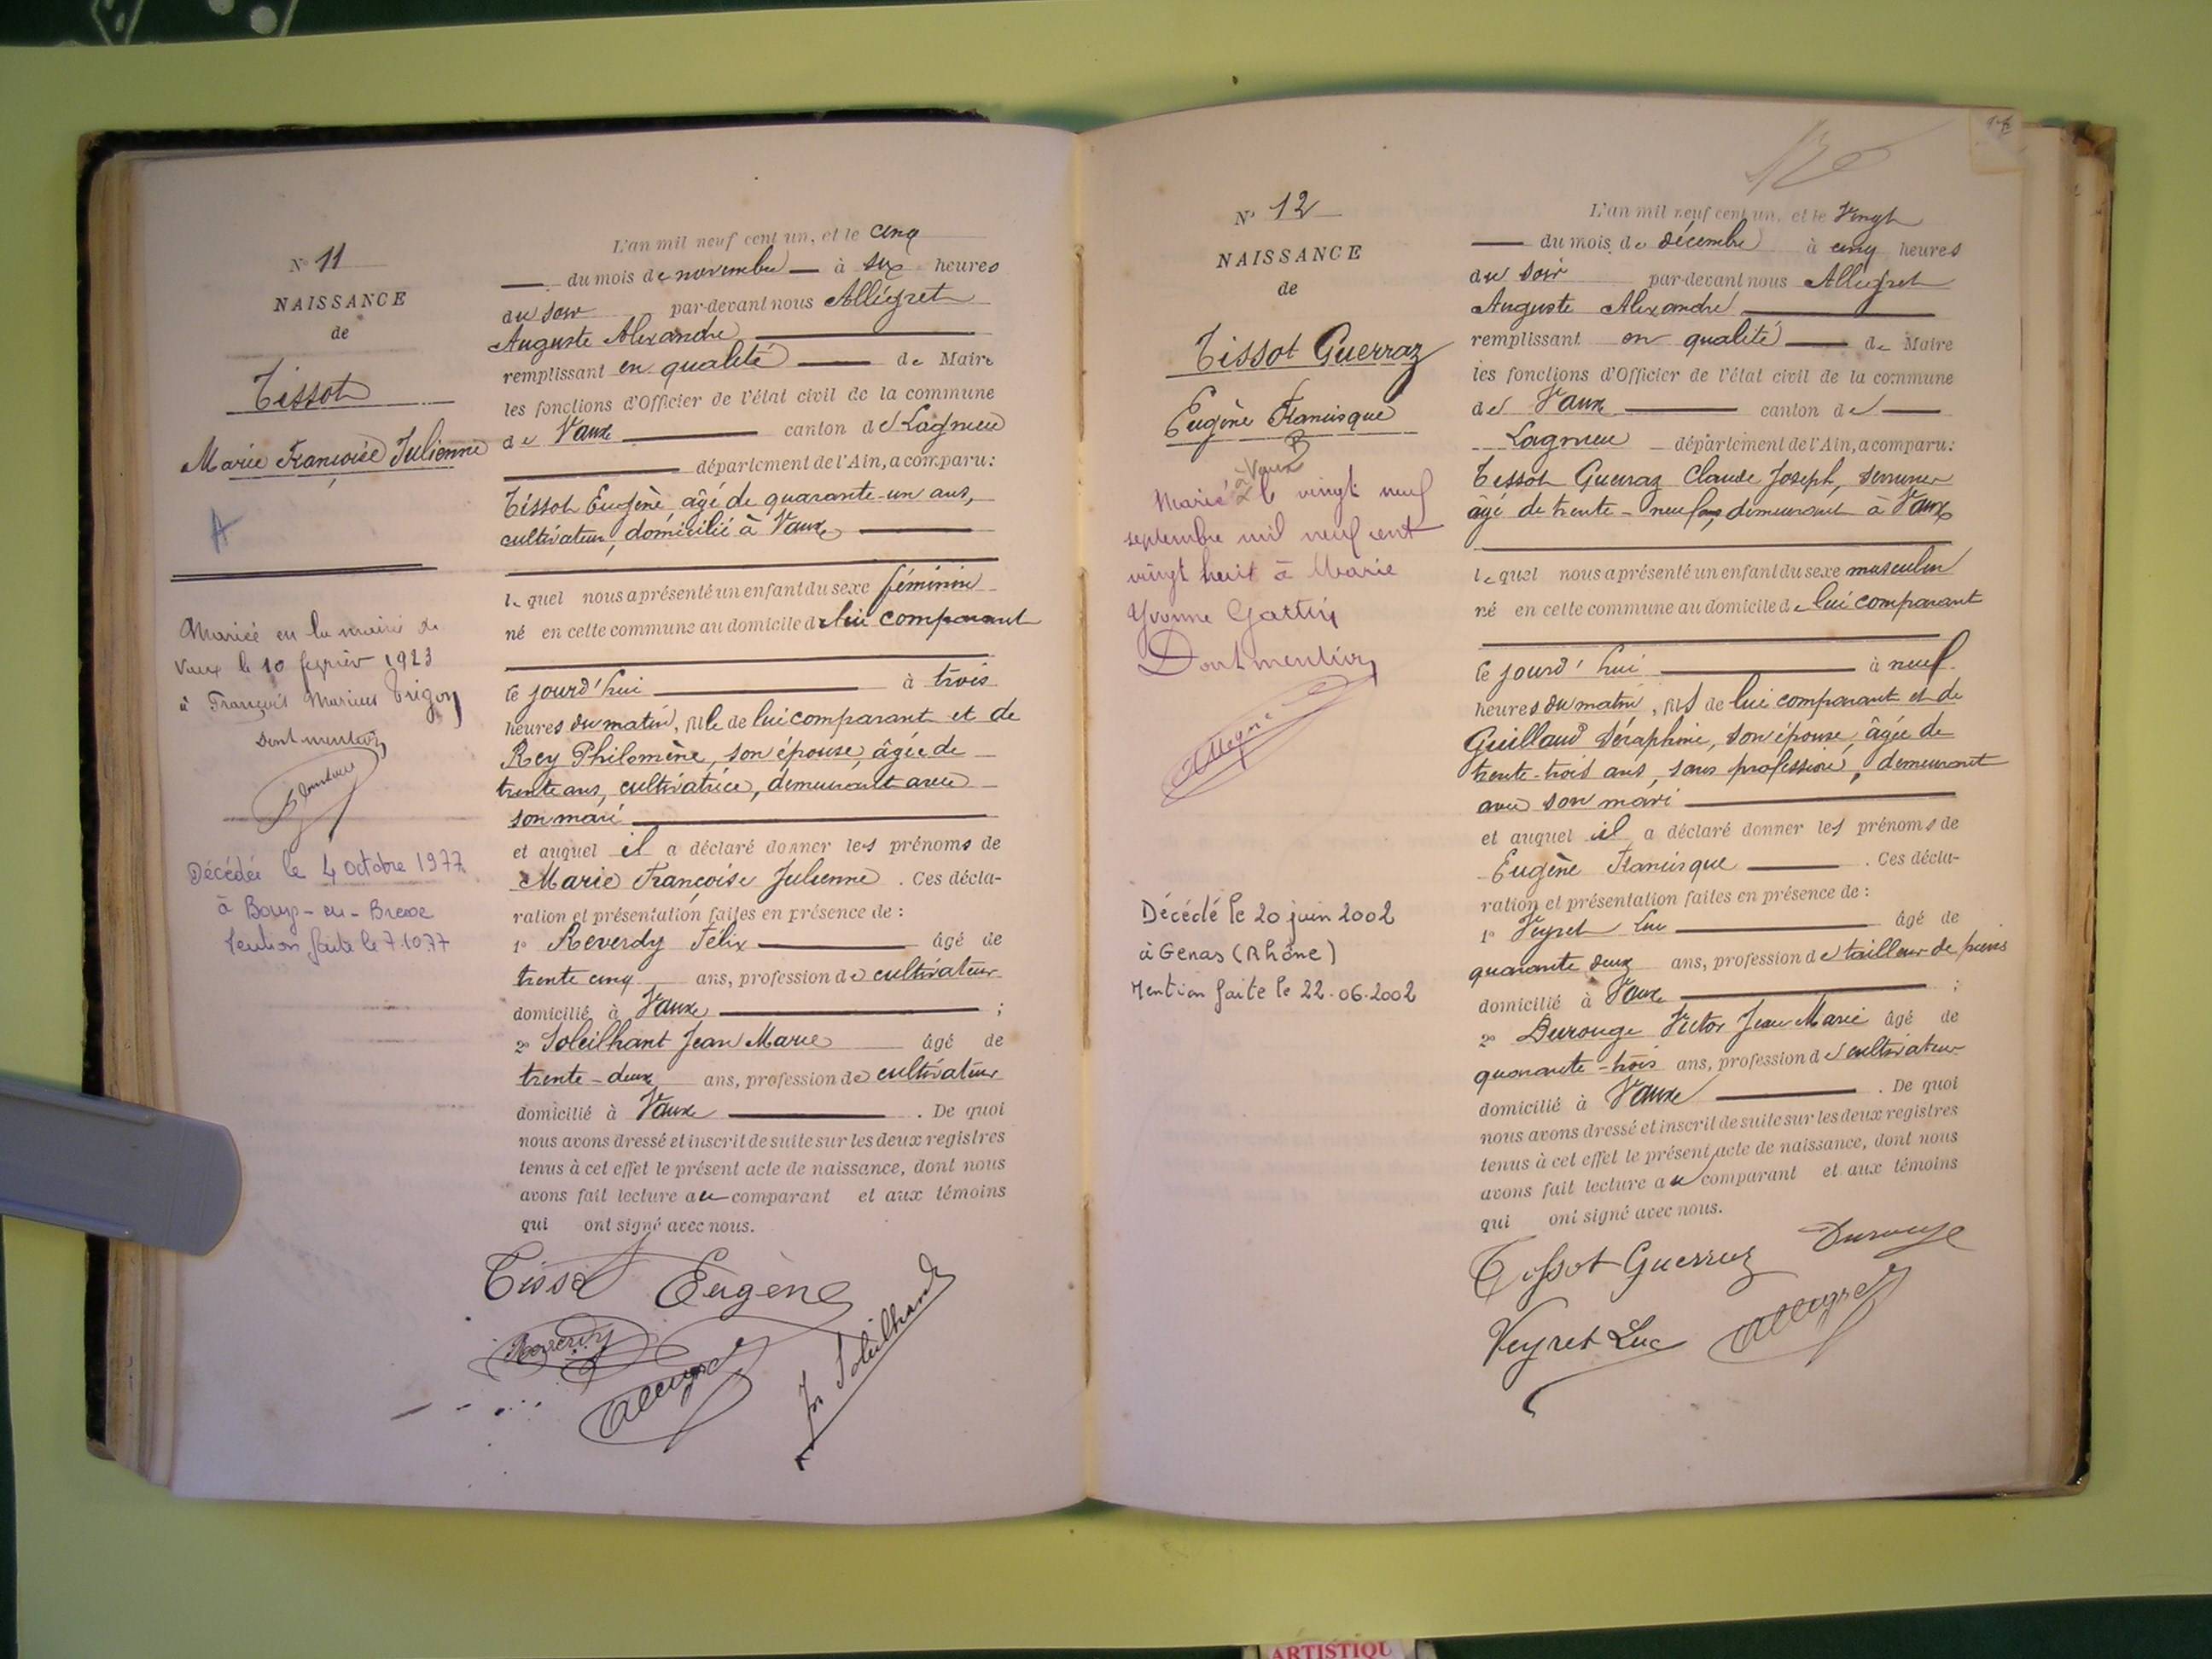 N° 11
NAISSANCE
de
Tissot
Marie Françoise Julienne
A
Mariée en la mairie de
Vaux le 10 février 1923
à François Marius Trigon
Dont mention
Décédée le 4 octobre 1977
à Bourg-en-Bresse
Mention faite le 7.10.77
L'an mil neuf cent un, et le cinq
du mois de novembre à six heures
du soir par-devant nous Allégret
Auguste Alexandre
remplissant en qualité de Maire
les fonctions d'Officier de l'état civil de la commune
de Vaux canton de Lagnieu
département de l'Ain, a comparu:
Tissot Eugène, âgé de quarante-un ans,
cultivateur, domicilié à Vaux
lequel nous a présenté un enfant du sexe féminin
né en cette commune au domicile de lui comparant
ce jourd'hui à trois
heures du matin, fille de lui comparant et de
Rey Philomène, son épouse, âgée de
trente ans, cultivatrice, demeurant avec
son mari
et auquel il a déclaré donner les prénoms de
Marie Françoise Julienne. Ces décla-
ration et présentation faites en présence de :
1° Reverdy Félix âgé de
trente cinq ans, profession de cultivateur
domicilié à Vaux ;
2° Soleilhant Jean Marie âgé de
trente-deux ans, profession de cultivateur
domicilié à Vaux . De quoi
nous avons dressé et inscrit de suite sur les deux registres
tenus à cet effet le présent acte de naissance, dont nous
avons fait lecture au comparant et aux témoins
qui ont signé avec nous.
Tissot Eugène
Reverdy
Allégret
Jn Soleilhant
N° 12
NAISSANCE
de
Tissot Guerraz
Eugène Francisque
B
à Vaux
Marié le vingt neuf
septembre mil neuf cent
vingt huit à Marie
Yvonne Gattin
Dont mention
Allégret
Décédé le 20 juin 2002
à Genas (Rhône)
Mention faite le 22.06.2002
L'an mil neuf cent un, et le vingt
du mois de décembre à cinq heures
du soir par-devant nous Allégret
Auguste Alexandre
remplissant en qualité de Maire
les fonctions d'Officier de l'état civil de la commune
de Vaux canton de
Lagnieu département de l'Ain, a comparu:
Tissot Guerraz Claude Joseph, serrurier
âgé de trente-neuf ans, demeurant à Vaux
lequel nous a présenté un enfant du sexe masculin
né en cette commune au domicile de lui comparant
ce jourd'hui à neuf
heures du matin, fils de lui comparant et de
Guillaud Séraphine, son épouse, âgée de
trente-trois ans, sans profession, demeurant
avec son mari
et auquel il a déclaré donner les prénoms de
Eugène Francisque . Ces décla-
ration et présentation faites en présence de :
1° Veyret Luc âgé de
quarante deux ans, profession de tailleur de pierres
domicilié à Vaux ;
2° Durouge Victor Jean Marie âgé de
quarante-trois ans, profession de cultivateur
domicilié à Vaux . De quoi
nous avons dressé et inscrit de suite sur les deux registres
tenus à cet effet le présent acte de naissance, dont nous
avons fait lecture au comparant et aux témoins
qui ont signé avec nous.
Tissot Guerraz Durouge
Veyret Luc Allégret
ARTISTIQU